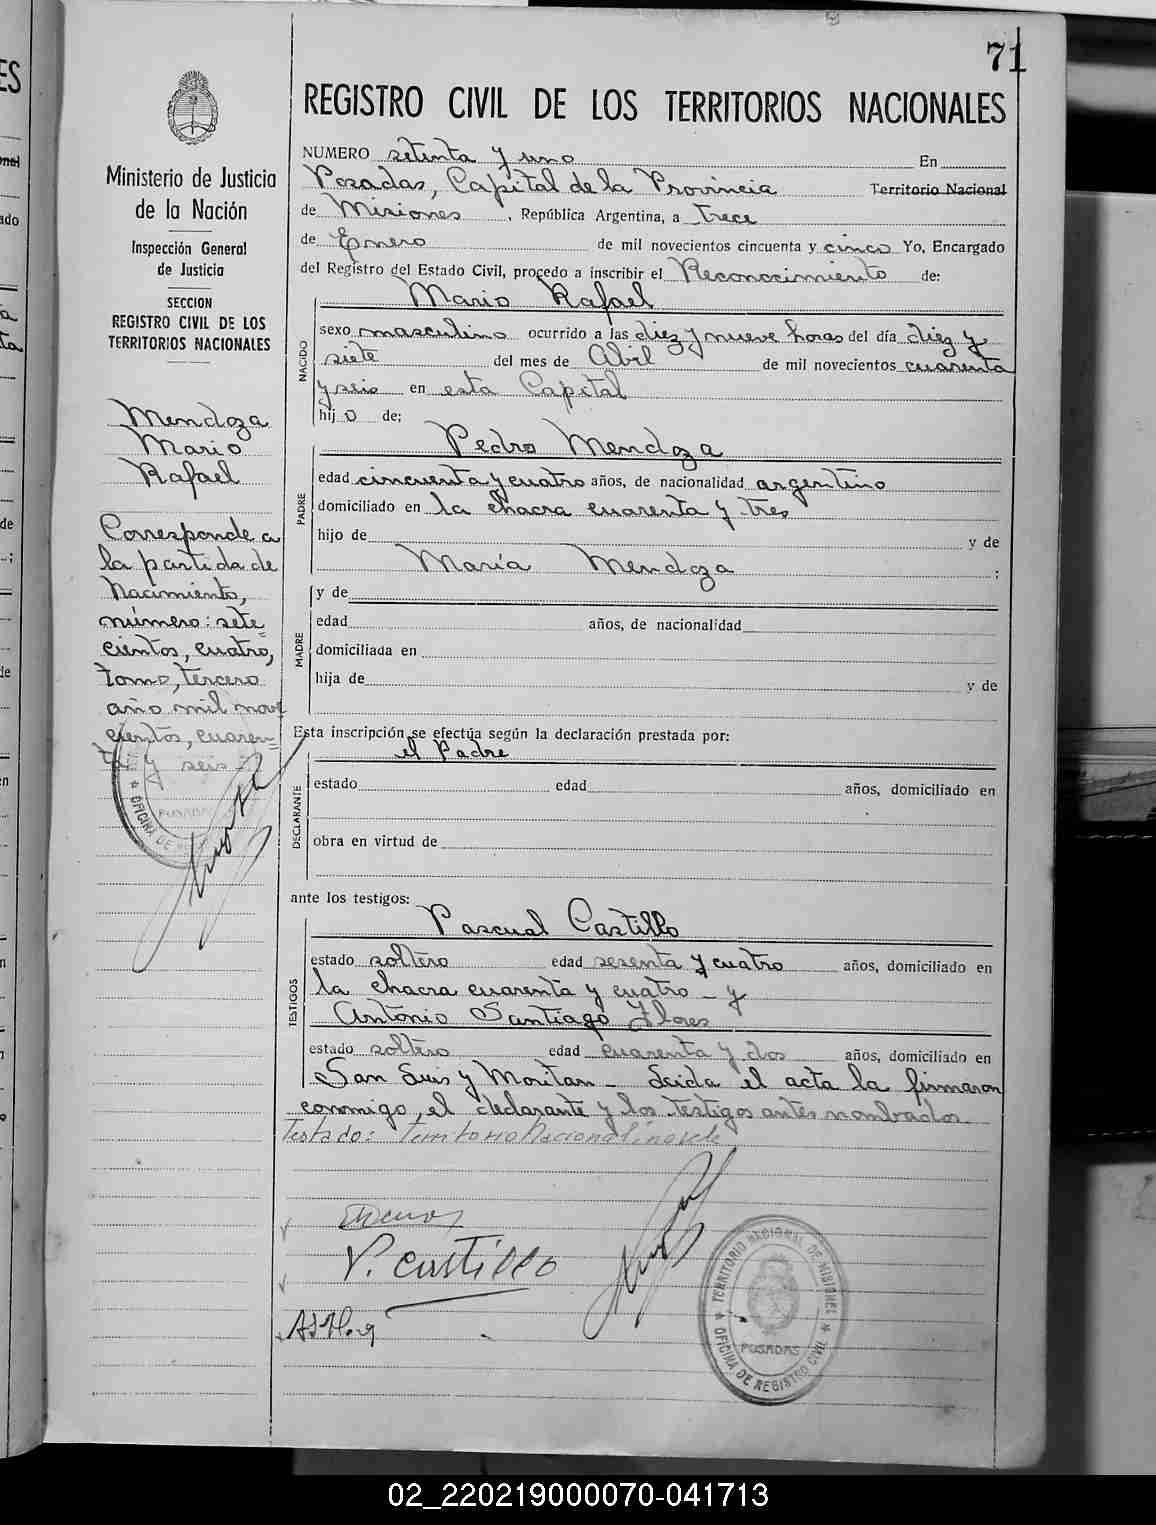 71
REGISTRO CIVIL DE LOS TERRITORIOS NACIONALES
Ministerio de Justicia
de la Nación
Inspección General
de Justicia
SECCION
REGISTRO CIVIL DE LOS
TERRITORIOS NACIONALES
Mendoza
Mario
Rafael
Corresponde a
la partida de
Nacimiento,
número: sete=
cientos, cuatro,
tomo, tercero
año mil nove
cientos, cuaren=
ta y seis
NUMERO setenta y uno En
Posadas, Capital de la Provincia Territorio Nacional
de Misiones, República Argentina, a trece
de Enero de mil novecientos cincuenta y cinco Yo, Encargado
del Registro del Estado Civil, procedo a inscribir el Reconocimiento de:
Mario Rafael
NACIDO
sexo masculino ocurrido a las diez y nueve horas del día diez y
siete del mes de Abril de mil novecientos cuarenta
y seis en esta Capital
hijo de;
Pedro Mendoza
PADRE
edad cincuenta y cuatro años, de nacionalidad argentino
domiciliado en la chacra cuarenta y tres
hijo de y de
María Mendoza ;
MADRE
y de
edad años, de nacionalidad
domiciliada en
hija de y de
Esta inscripción se efectúa según la declaración prestada por:
el Padre
DECLARANTE
estado edad años, domiciliado en
obra en virtud de
ante los testigos:
Pascual Castillo
TESTIGOS
estado soltero edad sesenta y cuatro años, domiciliado en
la chacra cuarenta y cuatro - y
Antonio Santiago Flores
estado soltero edad cuarenta y dos años, domiciliado en
San Luis y Moritan - Leida el acta la firmaron
conomigo, el declarante y los testigos antes nombrados.
Testado: Territorio Nacional no vale
P. Castillo
TERRITORIO NACIONAL DE MISIONES
POSADAS
OFICINA DE REGISTRO CIVIL
02_220219000070-041713